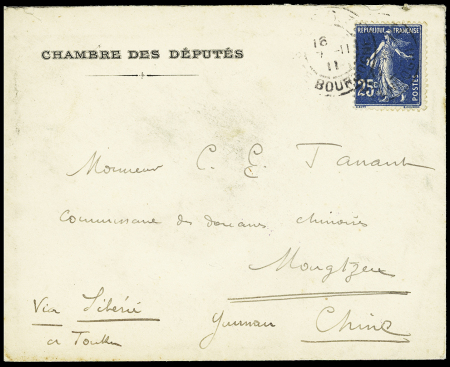 CHAMBRE DES DÉPUTÉS
16
7 -11
11
BOUR
RÉPUBLIQUE FRANÇAISE
25c
POSTES
Monsieur C. E. Tanant
Commissaire des douanes chinoises
Mongtzeu
Via Sibérie Yunnan Chine